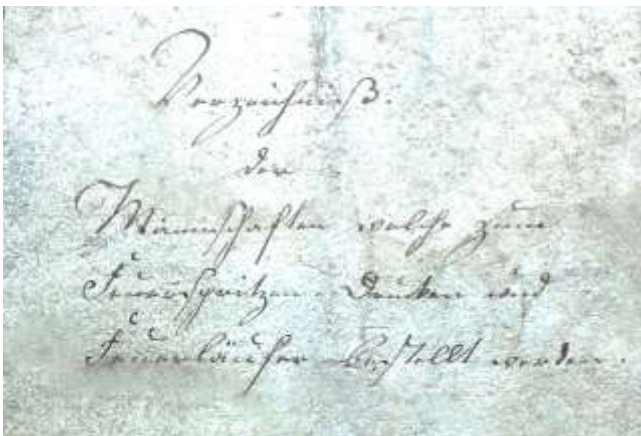 Verzeichniß.
der
Mannschaften welche zum
Feuerspritzen-Drucken und
Feuerläufer bestellt werden.